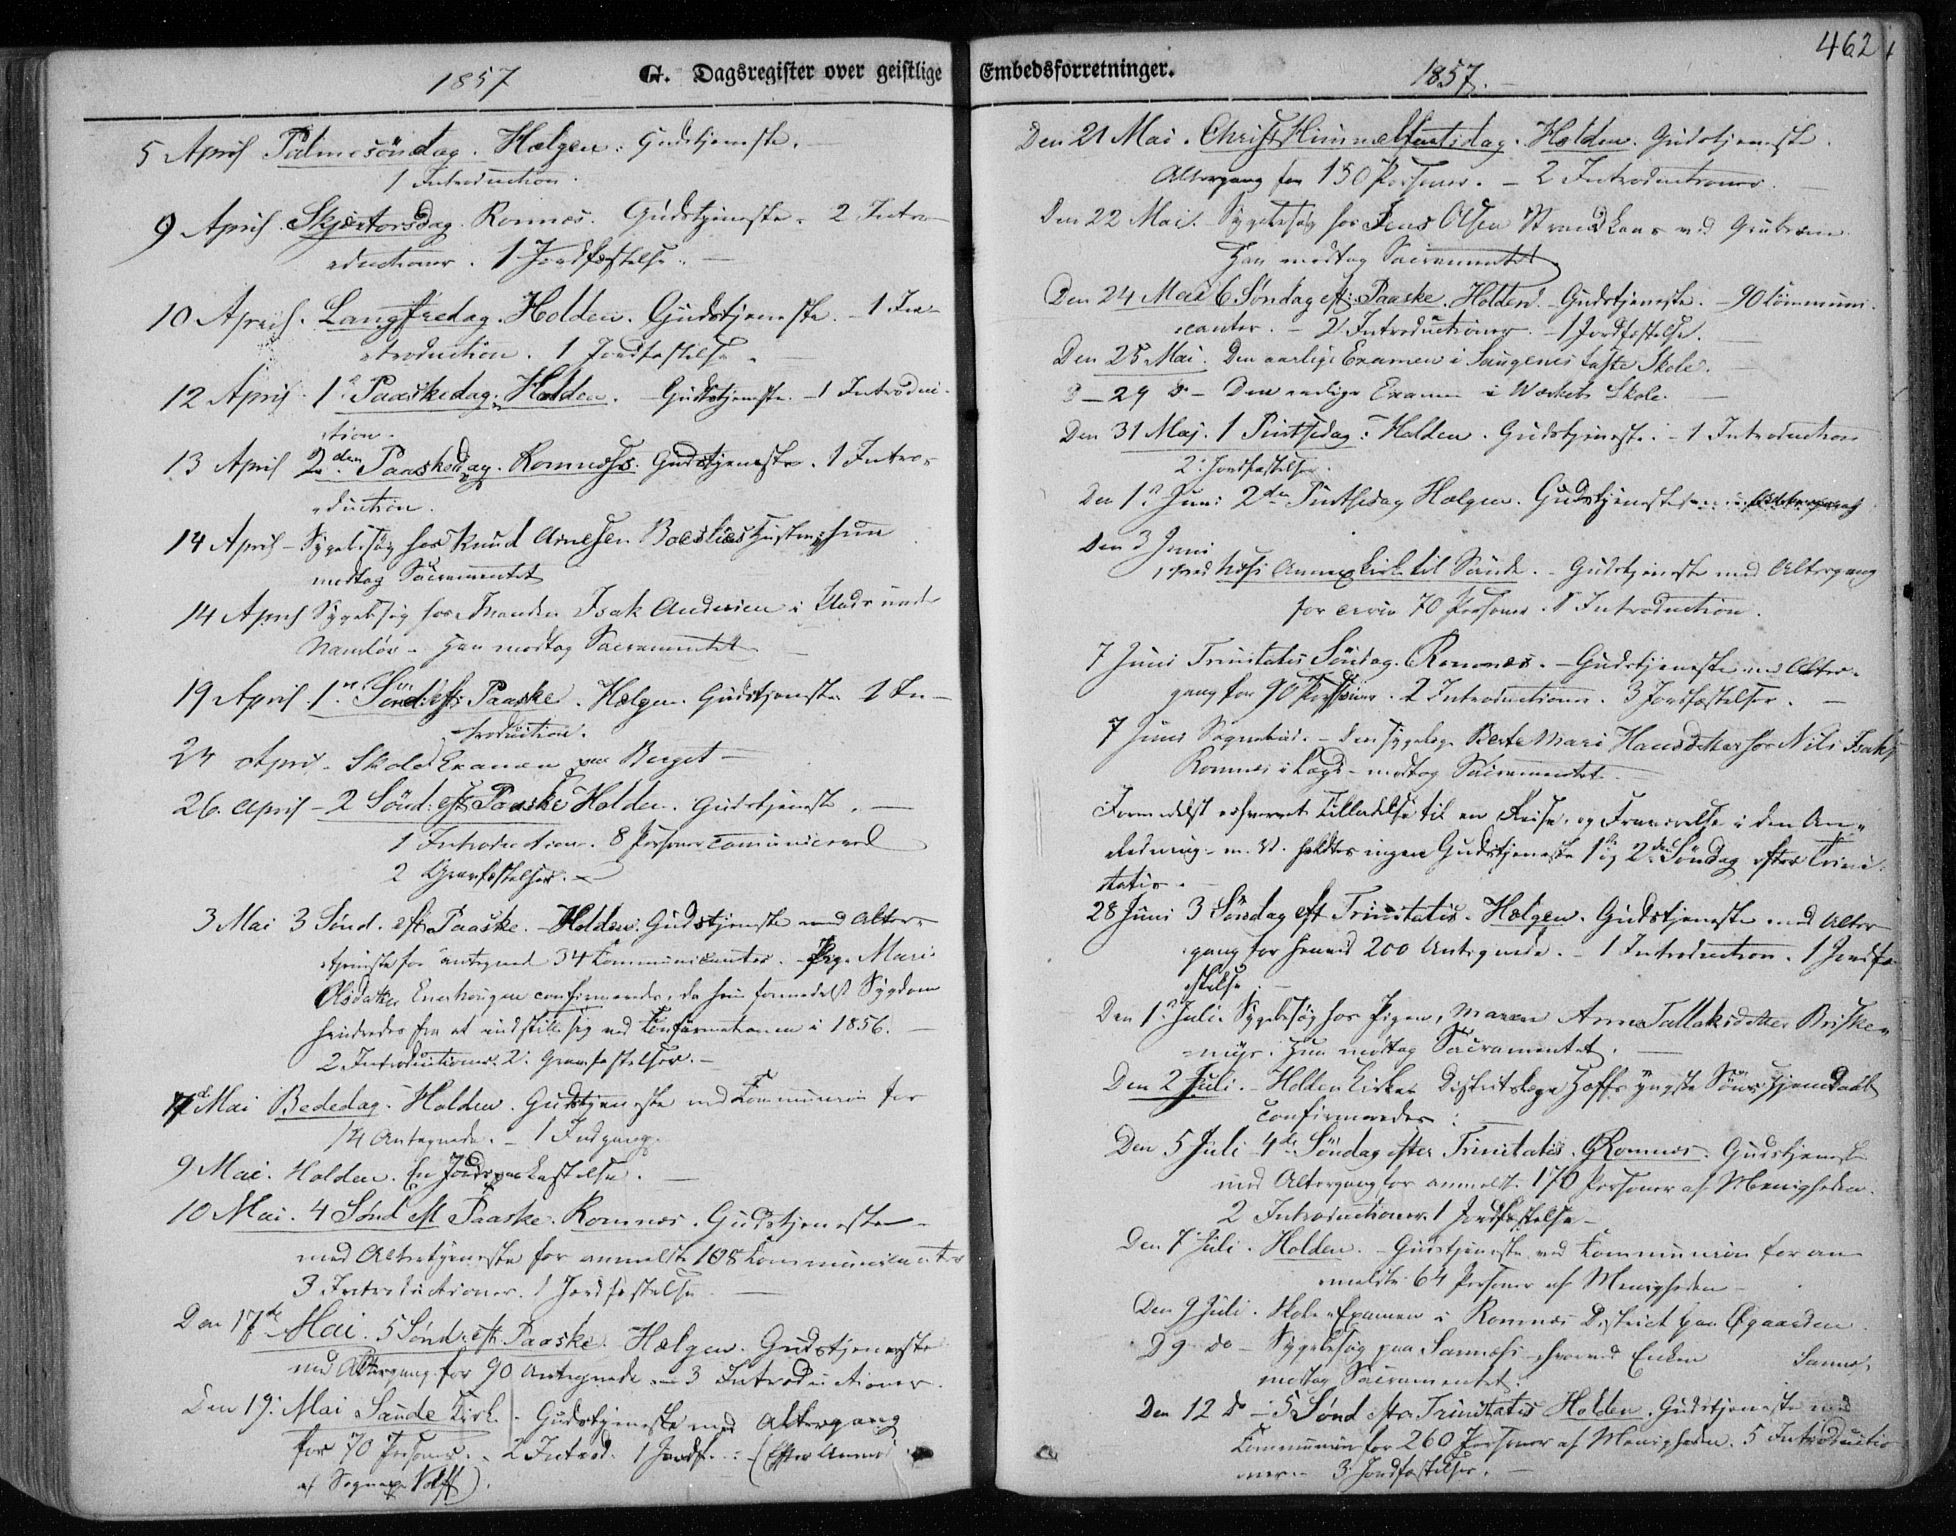 1857
G. Dagsregister over geistlige
5 April Palmesöndag. Hælgen. Gudstjeneste.
1 Introduction.
9 April. Skjærtorsdag. Romnæs. Gudstjeneste. 2 Intro-
ductioner. 1 Jordfæstelse.
10 April. Langfredag. Holden. Gudstjeneste. - 1 In-
troduction. 1 Jordfæstelse.
12 April. 1e Paaskedag. Holden. Gudstjeneste. - 1 Introduc-
tion.
13 April 2den Paaskedag. Romnæs. Gudstjeneste. 1 Intro-
duction.
14 April - Sygebesøg hos Knud Arnesen Hustru; hun
modtog Sacramentet
14 April Sygebesøg hos Manden Isak Andersen i
Namløs - Han modtog Sacramentet
19 April. 1ste Sønd: eft Paaske. Hælgen. Gudstjeneste 1 In-
troduction.
24 April - Skole Examen paa Berget -
26. April - 2 Sönd: eft Paaske Holden. Gudstjeneste. -
1 Introduction. 8 Personer communicered
2 Gravfæstelser.
3 Mai 3 Sönd. eft Paaske. - Holden. Gudstjeneste med Alter-
tjeneste for antegned 34 Kommunicanter. - Pige Mari
Olsdatter confirmeredes, da hun formedelst Sygdom
hindredes fra at indstille sig ved Konfirmationen i 1856. -
2 Introductioner. 2 Gravfæstelser. -
Mai Bededag. Holden. Gudstjeneste med Kommunion for
14 Antegnede. - 1 Indgang.
9 Mai. Holden. En Jordpaakastelse.
10 Mai. 4 Sönd eft Paaske. Romnæs. Gudstjeneste
med Altertjeneste for anmeldte 108 Kommunicanter
3 Introductioner. 1 Jordfæstelse
Den 17de Mai. 5 Sönd: eft. Paaske. Hælgen. Gudstjeneste
med Altergang for 90 Antegnede - 3 Introductioner.
Den 19: Mai Saude Kirke. Gudstjeneste med Altergang
for 70 Personer. - 2 Introd. 1 Jordf. - (Efter
af Sognepr. Wolff).
462
Embedsforretninger.
1857.
Den 21 Mai. Christi Himmelfartsdag. Holden. Gudstjeneste.
Altergang for 150 Personer. - 2 Introductioner.
Den 22 Mai. Sygebesøg hos Jens Olsen ved Gruberne.
Han modtog Sacramentet
Den 24 Mai 6 Søndag eft: Paaske. Holden. Gudstjeneste. - 90 Communi-
canter. - 2 Introductioner. - 1 Jordfæstelse.
Den 25 Mai. Den aarlige Examen i faste Skole.
D - 29 D - Den aarlige Examen i Værkets Skole.
Den 31 Maj. 1 Pintsedag. Holden. Gudstjeneste. - 1 Introduction
2 Jordfæstelser.
Den 1ste Juni 2den Pintsedag Hælgen. Gudstjeneste
Den 3 Juni
Annexkirke til Saude. - Gudstjeneste med Altergang
for circa 70 Personer. 1 Introduction.
7 Juni Trinitatis Söndag. Romnæs. - Gudstjeneste med Alter-
gang for 90 Personer. 2 Introductioner. 3 Jordfæstelser. -
7 Juni Sognebud. - den sygelige Berte Mari Hansdatter hos Nils Isaks
Romnæs i Lægd - modtog Sacramentet.
Formedelst erhvervet Tilladelse til en Reise og Fraværelse i den An-
ledning m. V. holdtes ingen Gudstjeneste 1ste og 2den Söndag efter Trini-
tatis.
28 Juni 3 Söndag eft Trinitatis. Hælgen. Gudstjeneste med Alter
gang for henved 200 Antegnede. - 1 Introduction. 1 Jordfæ-
stelse.
Den 1ste Juli. Sygebesøg hos Pigen, Maren Anne Tallaksdatter Briske-
myr. Hun modtog Sacramentet.
Den 2 Juli. - Holden Kirke Districtslæge Hoffs yngste Søn Hjemdaab
confirmeredes.
Den 5 Juli 4de Söndag efter Trinitatis. Romnæs. Gudstjeneste
med Altergang for anmeldte 170 Personer af Menigheden.
2 Introductioner. 1 Jordfæstelse -
Den 7 Juli. Holden. - Gudstjeneste med Kommunion for an-
meldte 64 Personer af Menigheden -
Den 9 Juli. Skole-Examen i Romnæs District paa Øgaarden
D 9 Do - Sygebesøg paa Sannæs - hvorved Enken Sannæs
modtog Sacramentet.
Den 12 Do - 5 Sønd eftr Trinitatis Holden. Gudstjeneste med
Kommunion for 260 Personer af Menigheden. 5 Introductio
ner - 3 Jordfæstelser.